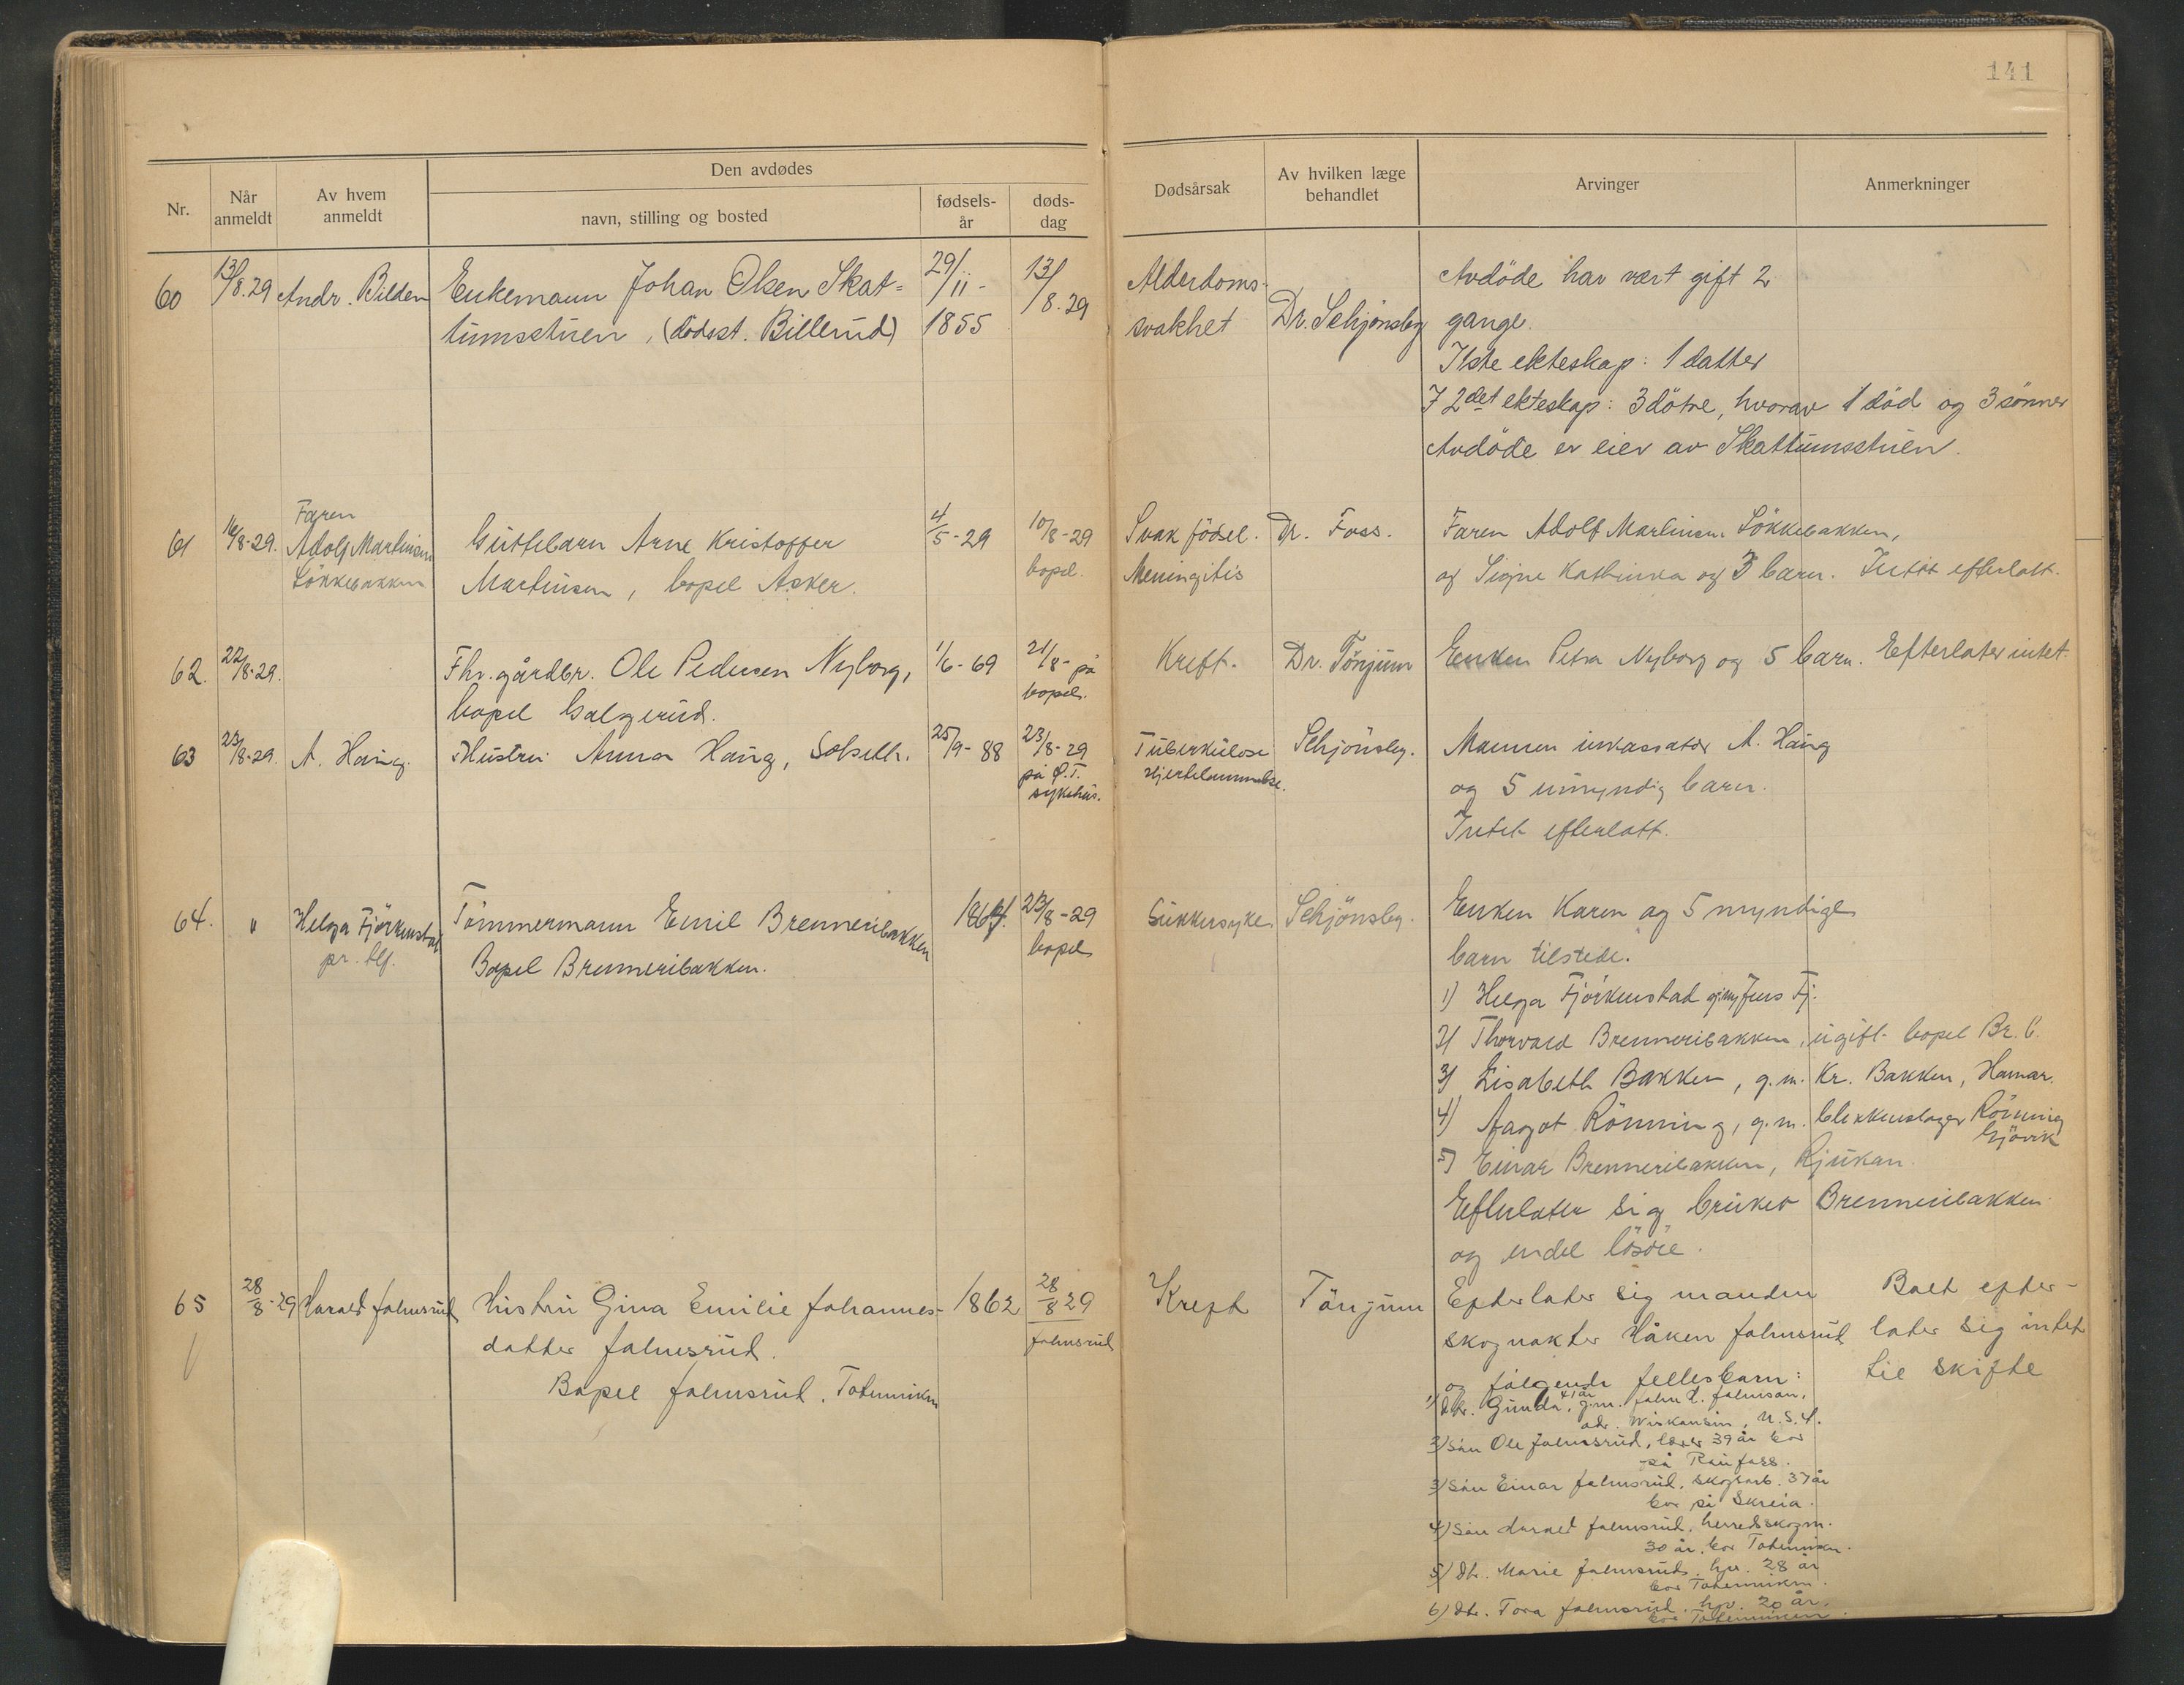 141
Den avdødes
Nr.
Når anmeldt
Av hvem anmeldt
navn, stilling og bosted
fødsels-år
døds-dag
Dødsårsak
Av hvilken læge behandlet
Arvinger
Anmerkninger
60 13/8.29 Andr. Bilden Enkemann Johan Olsen Skat= 29/11- 13/8.29 Alderdoms- Avdöde har vært gift 2
tumsstuen, (dödsst. Billerud) 1855 svakhet Dr. Schjønsby gange.
I 1ste ekteskap: 1 datter
I 2det ekteskap: 3 dötre, hvorav 1 död og 3 sönner
Avdöde er eier av Skattumsstuen.
Faren
61 16/8-29. Adolf Martinsen Guttebarn Arne Kristoffer 4/5-29 10/8-29 Svak födsel. Dr. Foss. Faren Adolf Martinsen Lökkebakken,
Lökkebakken Martinsen, bopel Asker. bopel. Meningitis og Signe Kathinka og 3 barn. Intet efterlatt.
62. 22/8-29. Fhv. gårdbr. Ole Pedersen Nyborg, 1/6-69 21/8- på Kreft. Dr. Tönjum Enken Petra Nyborg og 5 barn. Efterlater intet.
bopel Galgerud. bopel.
63 23/8-29. A. Haug. Hustru Anna Haug, Solseth. 25/9-88 23/8-29 Tuberkulose Schjönsby. Mannen inkassator A. Haug
på Ø.T. Hjertelammelse. og 5 umyndig barn.
sykehus. Intet efterlatt.
64. " Helga Fjörkenstad Tömmermann Emil Brenneribakken 1864. 23/8-29 Sukkersyke. Schjönsby. Enken Karen og 5 myndige
pr. tlf. Bopel Brenneribakken. bopel barn tilstede.
1) Helga Fjörkenstad g.m. Jens Fj.
2) Thorvald Brenneribakken, ugift bopel Br.b.
3) Lisabeth Bakken, g.m. Kr. Bakken, Hamar.
4) Aagot Rönning, g.m. blikkenslager Rönning
Gjövik
5) Einar Brenneribakken, Rjukan.
Efterlater sig bruket Brenneribakken
og endel lösöre.
65 28/8-29 Harald Jahnsrud Hustru Gina Emilie Johannes- 1862 28/8 29 Kreft Tönjum Efterlater sig manden Boet efter-
datter Jahnsrud. Jahnsrud skogvakter Håken Jahnsrud later sig intet
Bopel Jahnsrud. Totenviken og følgende fellesbarn: til skifte
1) Dtr. Gunda, 41 år g.m. John H. Johnson,
adr. Wiskonsin, U.S.A.
2) Sön Ole Jahnsrud, lærer 39 år bor
på Raufoss.
3) Sön Einar Jahnsrud, skogsarb. 37 år
bor på Skreia.
4) Sön Harald Jahnsrud, herredsskogm.
30 år, bor Totenviken.
5) Dtr. Marie Jahnsrud, hjv. 28 år
bor Totenviken.
6) Dtr. Tora Jahnsrud, hjv. 20 år.
bor Totenviken.